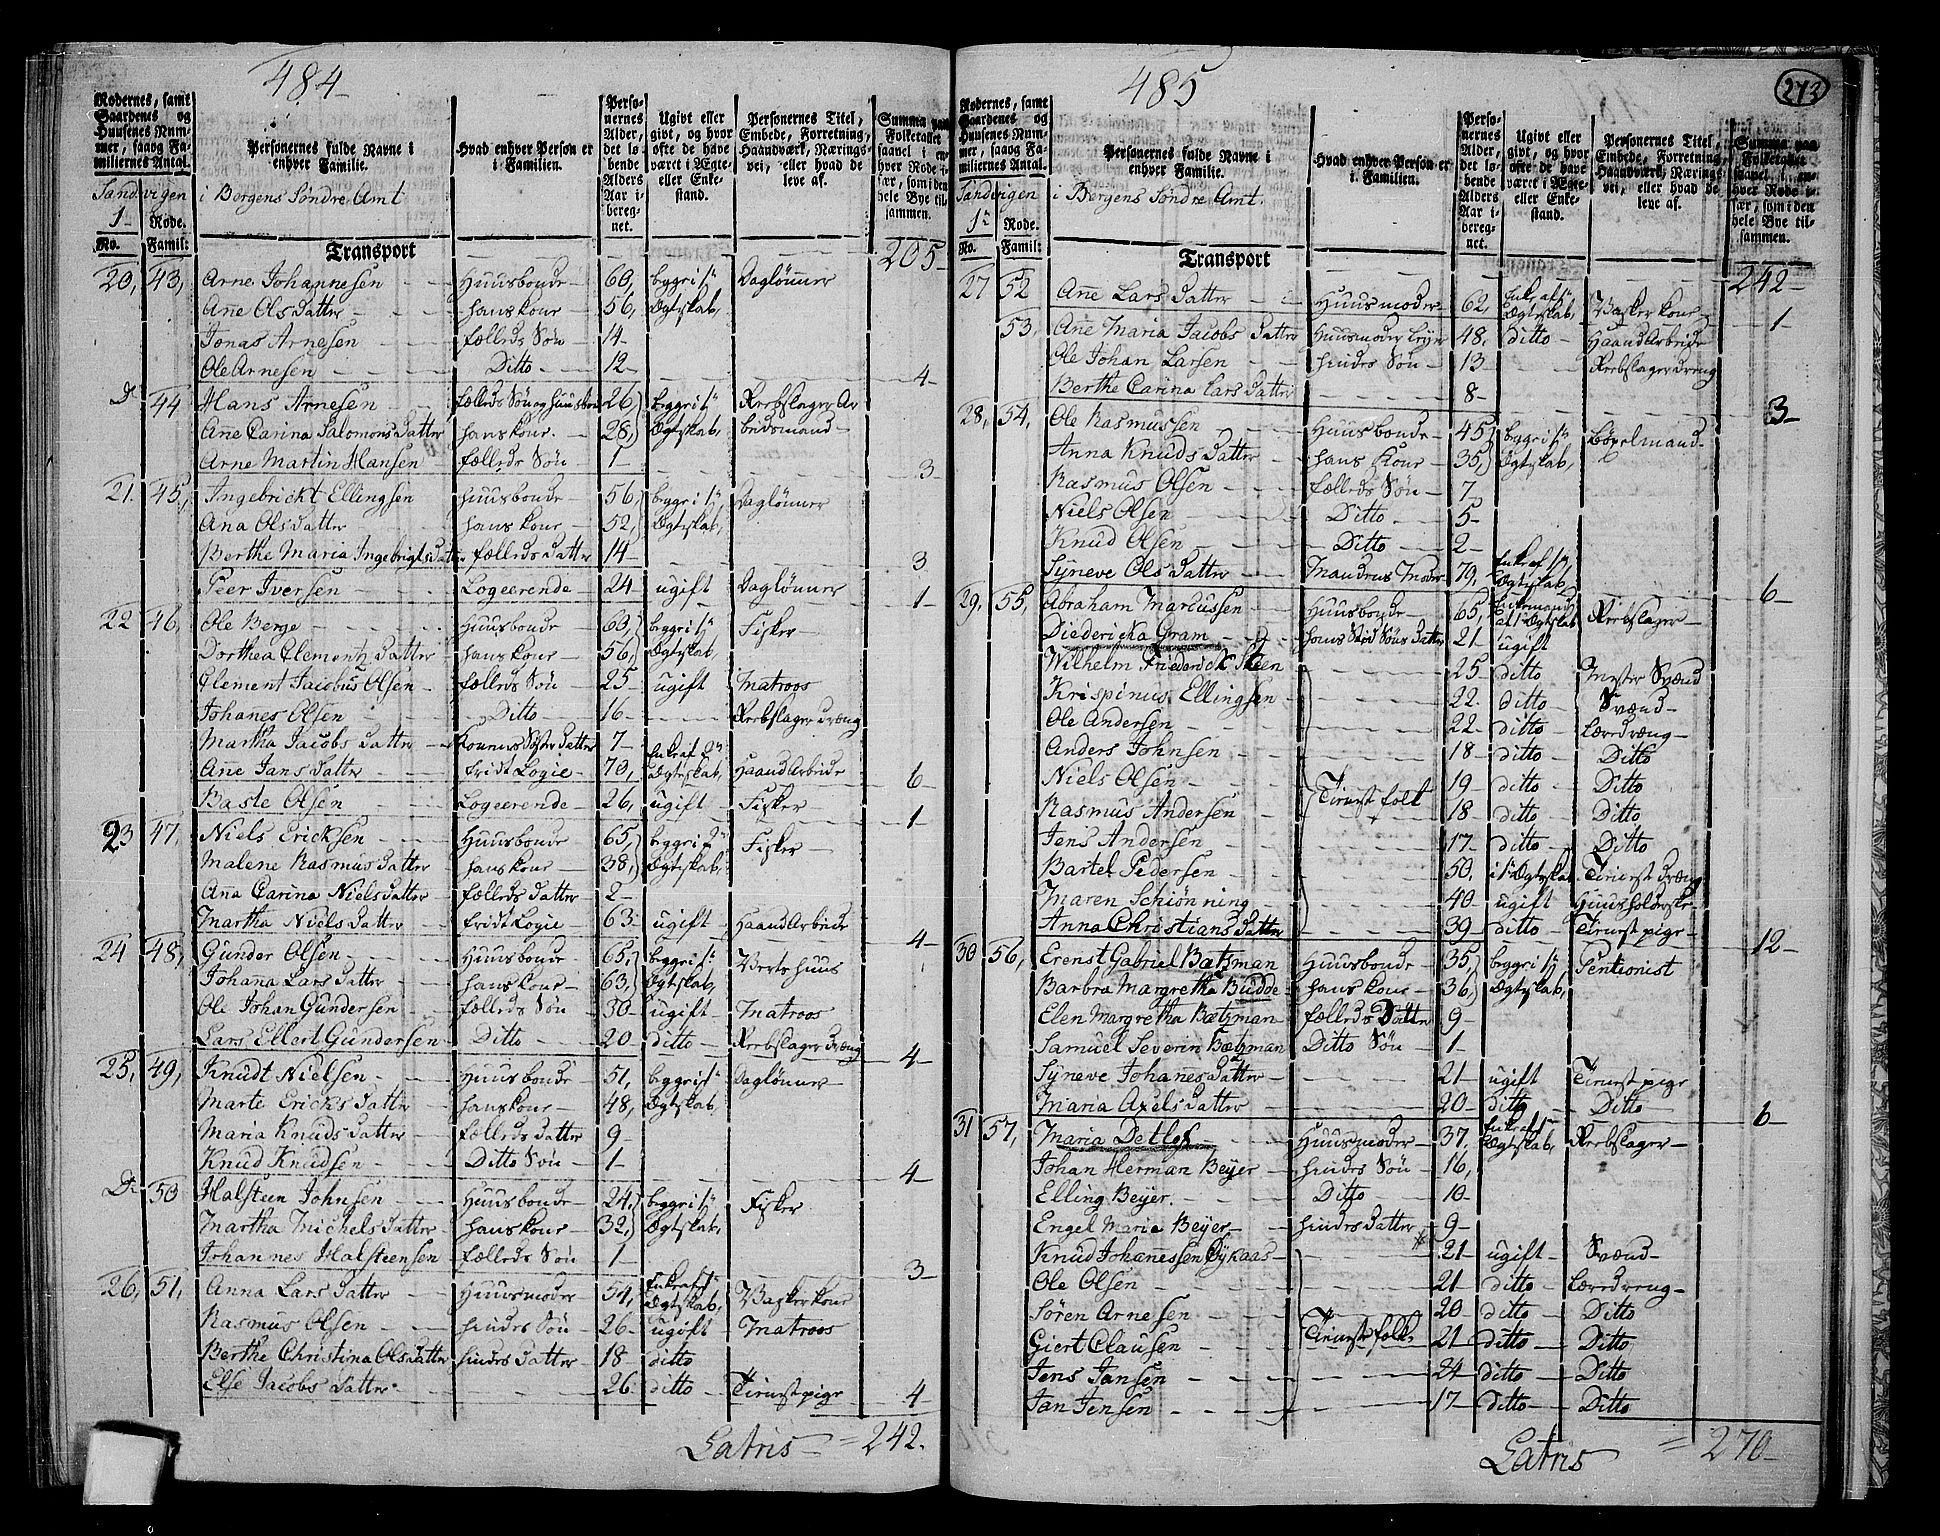 484
Rodernes, samt Gaardenes og Huusenes Nummer, saavog Familiernes Antal.
Personernes fulde Navne i enhver Familie.
Hvad enhver Person er i Familien.
Personernes Alder, det løbende Alders Aar iberegnet.
Ugivt eller givt, og hvor ofte de have været i Ægte- eller Enkestand.
Personernes Titel, Embede, Forretning, Haandværk, Næringsvei, eller hvad de leve af.
Summa paa Folketallet saavel i enhver Rode især, som i den hele Bye tilsammen.
Sandvigen i Bergens Søndre Amt
1 Rode.
No. Famil:
Transport 205
20, 43, Arne Johannesen Huusbonde 60, begge i 1ste Daglønner
Ane Olsdatter hans kone 56, Ægteskab,
Jonas Arnesen fælleds Søn 14
Ole Arnesen Ditto 12 4
D 44 Hans Arnesen fælleds Søn og Huusbon 26) begge i 1ste Reebslager Ar
Ane Carina Salomons Datter hans kone. 28,) Ægteskab, beidsmand
Arne Martin Hansen fælleds Søn 1 3
21. 45, Ingebrickt Ellingsen Huusbonde 56) begge i 1ste Daglønner
Ana Olsdatter hans kone 52,) Ægteskab,
Berthe Maria Ingebrigtsdatter fælleds datter 14 3
Peer Iversen Logeerende 24 ugift Daglønner 1
22 46, Ole Berge Huusbonde 60) begge i 1ste Fisker
Dorthea Clementz datter hans kone 56,) Ægteskab,
Clement Jacobus Olsen fælleds Søn 25 ugift Matroos
Johanes Olsen Ditto 16 Reebslager dræng
Martha Jacobs datter Konens Søster datter 7
Ane Jans datter fridt Logie 70, Enke af 2det Ægteskab, Haand Arbeide 6
Baste Olsen Logeerende 26, ugift Fisker 1
23 47, Niels Ericksen Huusbonde 65) begge i 2det Fisker
Malene Rasmus datter hans kone 38,) Ægteskab,
Ana Carina Nielsdatter fælleds datter 2
Martha Niels datter fridt Logie 63 ugift Haand Arbeide 4
24 48, Gunder Olsen Huusbonde 65,) begge i 1ste Vertshuus
Johana Lars datter hans kone 63,) Ægteskab,
Ole Johan Gundersen fælleds Søn 30 ugift Matroos
Lars Ellert Gundersen Ditto 20 ditto Reebslager dræng 4
25, 49, Knudt Nielsen Huusbonde 51, begge i 1ste Daglønner
Marte Ericks datter hans kone 48, Ægteskab,
Maria Knuds datter fælleds datter 9
Knud Knudsen Ditto Søn 1 4
D 50 Halsteen Johnsen Huusbonde 24,) begge i 1ste Fisker
Martha Michels datter hans kone 32,) Ægteskab,
Johannes Halsteensen fælleds Søn 1 3
26, 51, Anna Lars datter Huusmoder 54, Enke af 1ste Ægteskab, Vasker kone
Rasmus Olsen hindes Søn 26 ugift Matroos
Berthe Christina Olsdatter hindes datter 18 ditto
Else Jacobs datter 26 ditto Tienest pige 4
Latris = 242.
485
273
Rodernes, samt Gaardenes og Huusenes Nummer, saavog Familiernes Antal.
Personernes fulde Navne i enhver Familie.
Hvad enhver Person er i Familien.
Personernes Alder, det løbende Alders Aar iberegnet.
Ugivt eller givt, og hvor ofte de have været i Ægte- eller Enkestand.
Personernes Titel, Embede, Forretning, Haandværk, Næringsvei, eller hvad de leve af.
Summa paa Folketallet saavel i enhver Rode især, som i den hele Bye tilsammen.
Sandvigen i Bergens Søndre Amt.
1 Rode.
No. Famil:
Transport 242
27 52 Ane Lars datter Huusmoder 62, Enke af 1ste Ægteskab, Vasker kone 1
53, Ane Maria Jacobs datter Huusmoder 48, ditto Haand Arbeide
Ole Johan Larsen hindes Søn 13 Reebslager dreng
Berthe Carina Lars datter 8 3
28, 54, Ole Rasmussen Huusbonde 45) begge i 1ste
Anna Knuds datter hans kone 35,) Ægteskab,
Rasmus Olsen fælleds Søn 7
Niels Olsen Ditto 5
Knud Olsen Ditto 2
Syneve Ols datter Mandens Moder 79, Enke af 1ste Ægteskab 6
29, 55, Abraham Marcussen Huusbonde 65, Enkemand af 1 Ægteskab Reebslager
Diedericka Gram hans Sted Søns datter 21 ugift
Wilhelm Friederick Steen 25 ditto Mester Svænd
Krispinus Ellingsen 22 ditto Svænd
Ole Andersen 22 ditto Læredræng
Anders Johnsen 18 ditto Ditto
Niels Olsen Tienest folk 19 ditto Ditto
Rasmus Andersen 18 ditto Ditto
Jens Andersen 17 ditto Ditto
Bartel Pedersen 50, i 1ste Ægteskab Tienest dræng
Maren Schiønning 40 ugift Huusholderske
Anna Christians datter 39 ditto Tienest pige 12
30 56, Erenst Gabriel Bætzman Huusbonde 35) begge i 1ste Pentionist
Barbra Margretha Budde hans kone 36) Ægteskab,
Elen Margretha Bætzman fælleds Datter 9
Samuel Severin Bætzman Ditto Søn 1
Syneve Johanes datter 21 ugift Tienest pige
Maria Axels datter 20 ditto Ditto 6
31 57, Maria Detlof Huusmoder 37, Enke af 1ste Ægteskab, Reebslager
Johan Herman Beyer hindes Søn 16,
Elling Beyer Ditto 10
Engel Maria Beyer hindes datter 9
Knud Johanessen 21 ugift Svænd
Ole Olsen 21 ditto Læredreng
Sören Arnesen 20 ditto Ditto
Giert Clausen Tieneste folk 21 ditto Ditto
Jens Jansen 24 ditto Ditto
Jan Jensen 17 ditto Ditto
Latris = 270